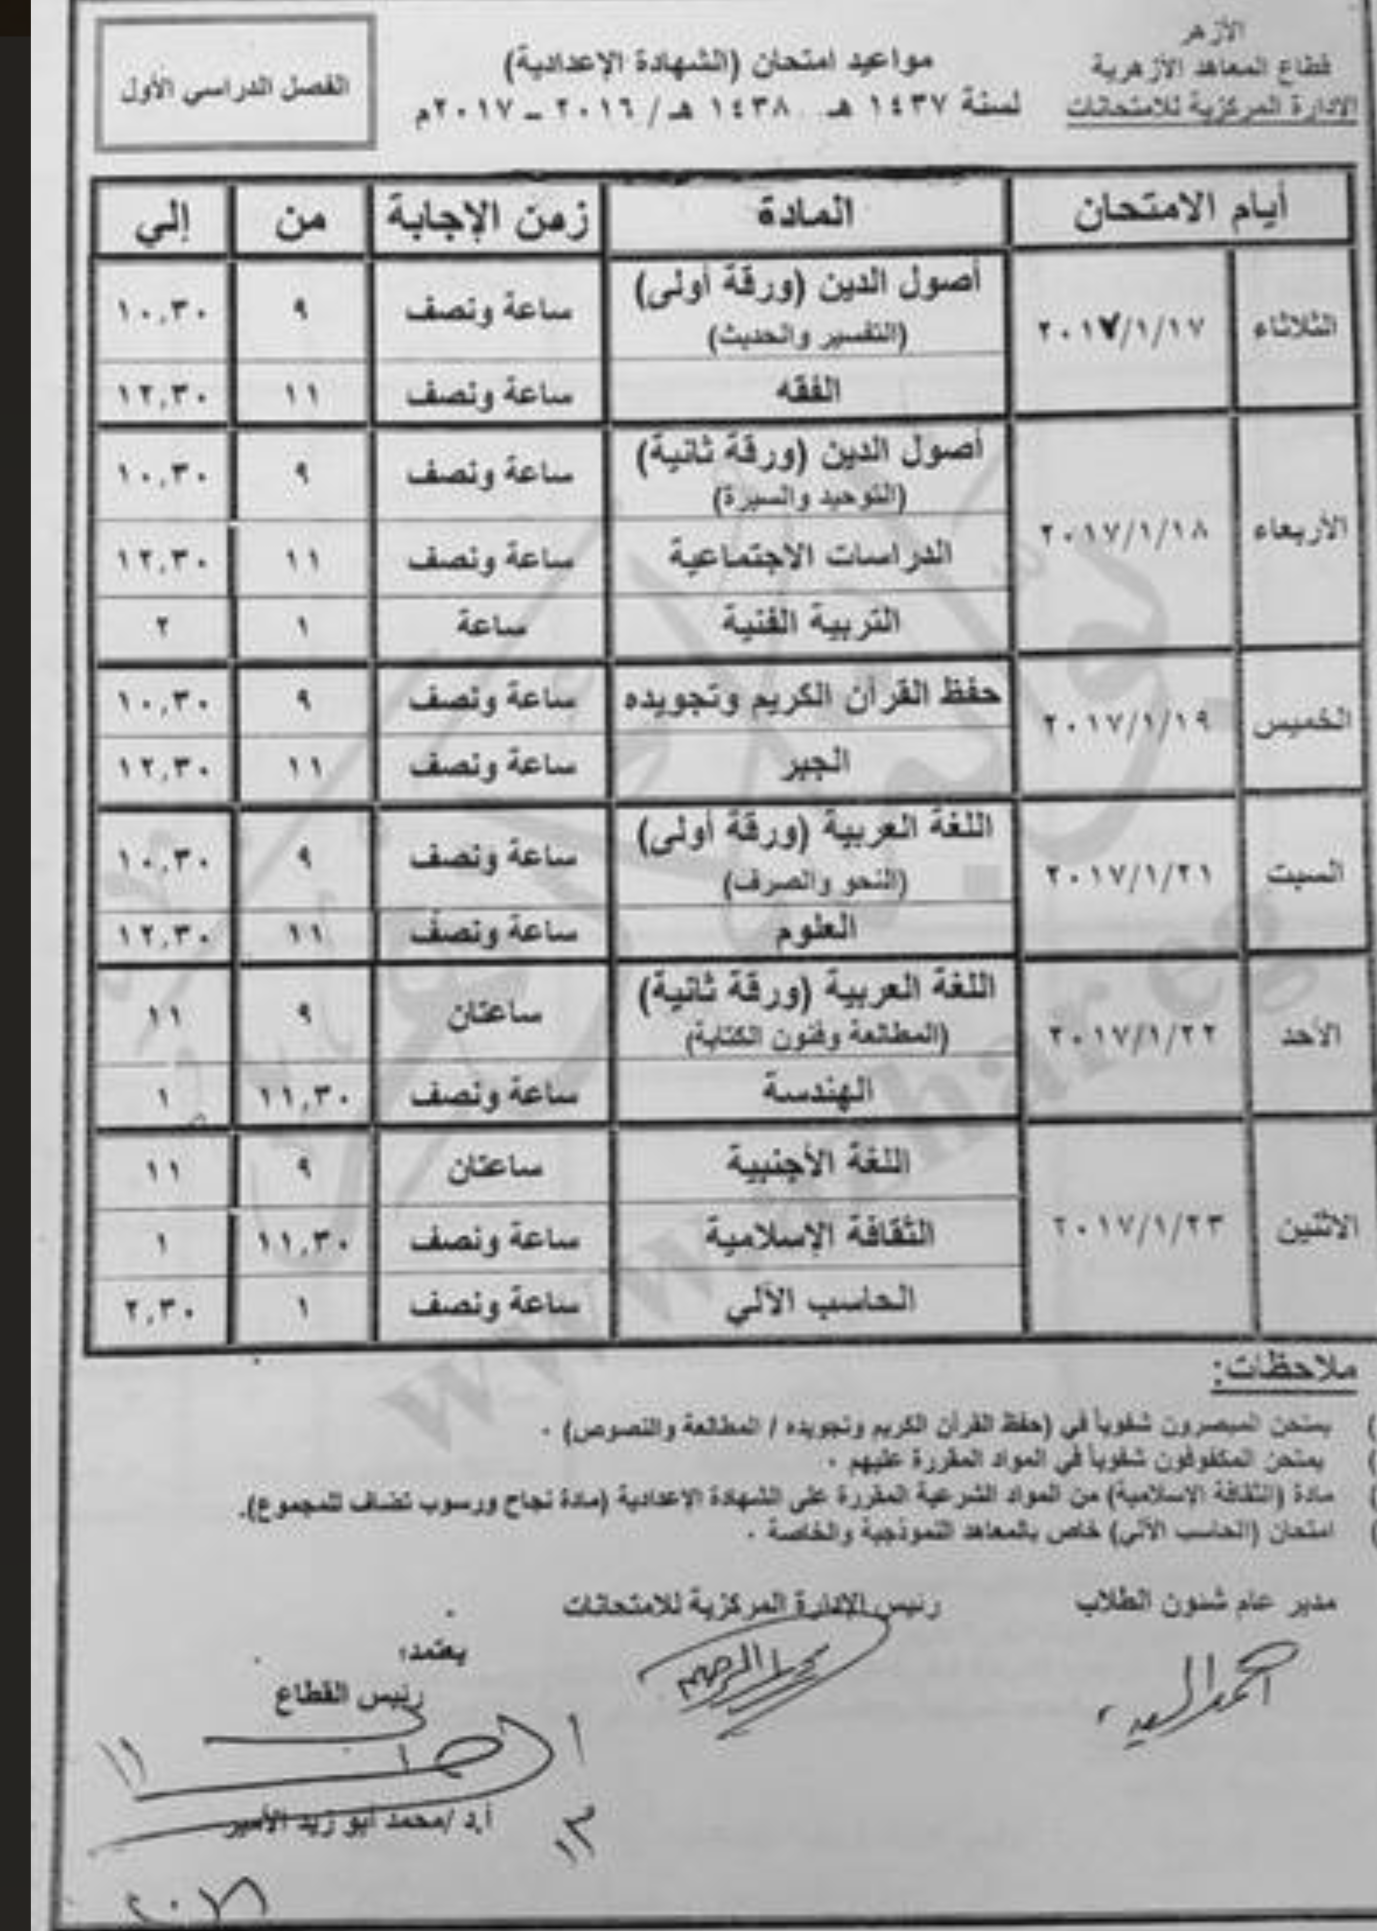 الأزهر
قطاع المعاهد الأزهرية
الادارة المركزية للامتحانات
مواعيد امتحان (الشهادة الإعدادية)
لسنة ١٤٣٧ هـ ١٤٣٨ هـ / ٢٠١٦ – ٢٠١٧م
الفصل الدراسي الأول
أيام الامتحان المادة زمن الإجابة من إلي
الثلاثاء ٢٠١٧/١/١٧ أصول الدين (ورقة أولى) ساعة ونصف ٩ ١٠,٣٠
(التفسير والحديث)
الفقه ساعة ونصف ١١ ١٢,٣٠
الأربعاء ٢٠١٧/١/١٨ أصول الدين (ورقة ثانية) ساعة ونصف ٩ ١٠,٣٠
(التوحيد والسيرة)
الدراسات الاجتماعية ساعة ونصف ١١ ١٢,٣٠
التربية الفنية ساعة ١ ٢
الخميس ٢٠١٧/١/١٩ حفظ القرآن الكريم وتجويده ساعة ونصف ٩ ١٠,٣٠
الجبر ساعة ونصف ١١ ١٢,٣٠
السبت ٢٠١٧/١/٢١ اللغة العربية (ورقة أولى) ساعة ونصف ٩ ١٠,٣٠
(النحو والصرف)
العلوم ساعة ونصف ١١ ١٢,٣٠
الأحد ٢٠١٧/١/٢٢ اللغة العربية (ورقة ثانية) ساعتان ٩ ١١
(المطالعة وفنون الكتابة)
الهندسة ساعة ونصف ١١,٣٠ ١
الاثنين ٢٠١٧/١/٢٣ اللغة الأجنبية ساعتان ٩ ١١
الثقافة الإسلامية ساعة ونصف ١١,٣٠ ١
الحاسب الآلي ساعة ونصف ١ ٢,٣٠
ملاحظات:
) يمتحن المبصرون شفوياً في (حفظ القرآن الكريم وتجويده / المطالعة والنصوص) .
) يمتحن المكفوفون شفوياً في المواد المقررة عليهم .
) مادة (الثقافة الإسلامية) من المواد الشرعية المقررة على الشهادة الاعدادية (مادة نجاح ورسوب تضاف للمجموع).
) امتحان (الحاسب الآلي) خاص بالمعاهد النموذجية والخاصة .
مدير عام شئون الطلاب
رئيس الإدارة المركزية للامتحانات
يعتمد؛
رئيس القطاع
أ.د /محمد أبو زيد الأمير